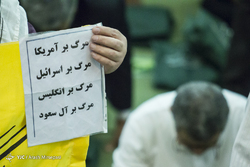 مرگ بر آمریکا
مرگ بر اسرائیل
مرگ بر انگلیس
مرگ بر آل سعود